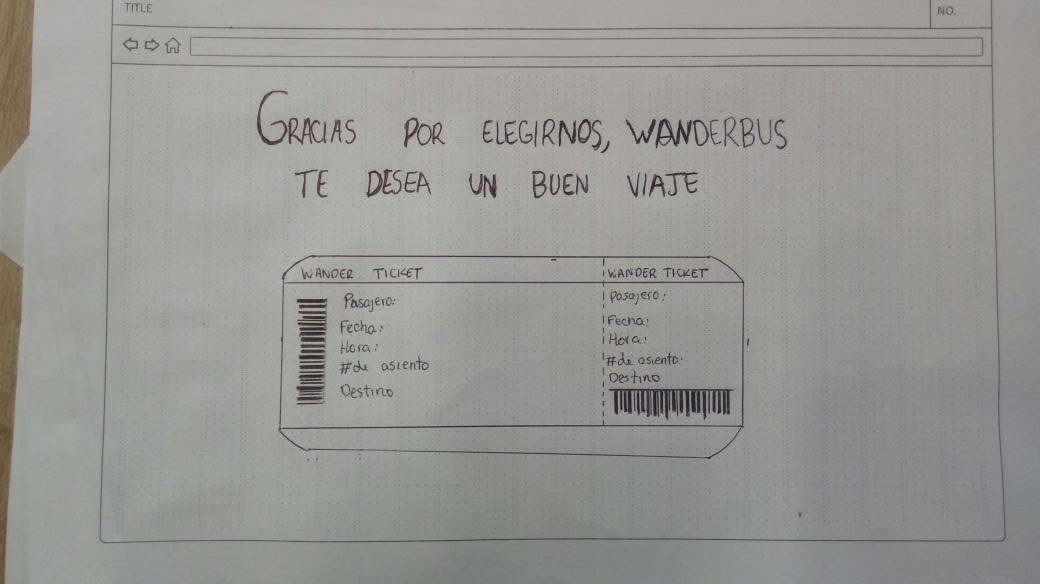 TITLE
NO.
GRACIAS POR ELEGIRNOS, WANDERBUS
TE DESEA UN BUEN VIAJE
WANDER TICKET
Pasajero:
Fecha:
Hora:
#de asiento
Destino
WANDER TICKET
Pasajero:
Fecha:
Hora:
#de asiento:
Destino